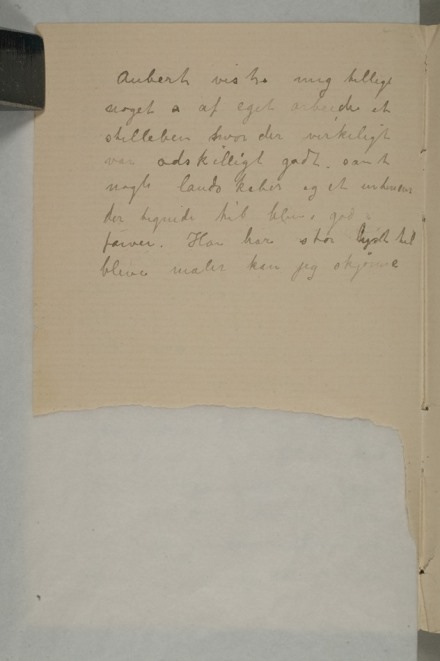 Aubert viste mig tillige
noget af eget arbeide et
stilleben hvor der virkeligt
var adskilligt godt samt
nogle landskaber og et
der lignede til blive god i
farver. Han have stor lyst til
blive maler kan jeg skjønne